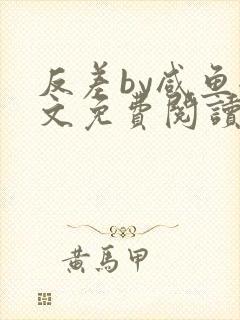 反差by咸鱼
文免费閱讀
黄馬甲